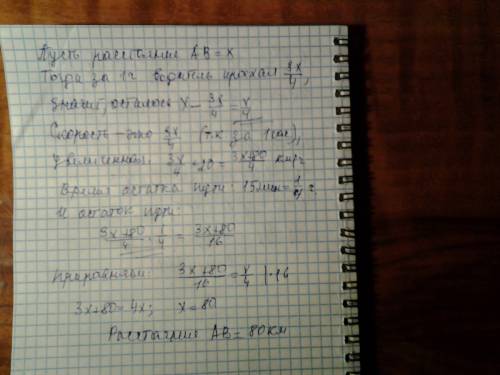 Пусть расстояние AB = x
Тогда за 1ч водитель проехал 3x/4,
значит, осталось x - 3x/4 = x/4
Скорость - это 3x/4 (т.к за 1 час),
увеличенная: 3x/4 + 20 = (3x+80)/4 км/ч
Время остатка пути: 15 мин = 1/4 ч.
И остаток пути:
(3x+80)/4 · 1/4 = (3x+80)/16
Приравняем: (3x+80)/16 = x/4 | · 16
3x+80 = 4x; x = 80
Расстояние AB = 80 км